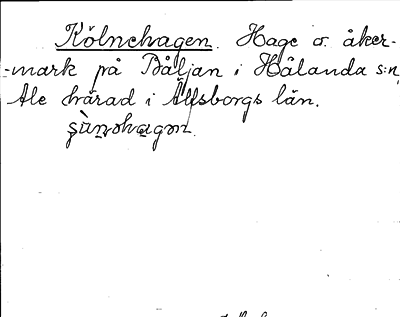 Kölnehagen. Hage o. åker-
-mark på Båljan i Hålanda s:n,
Ale härad i Älfsborgs län.